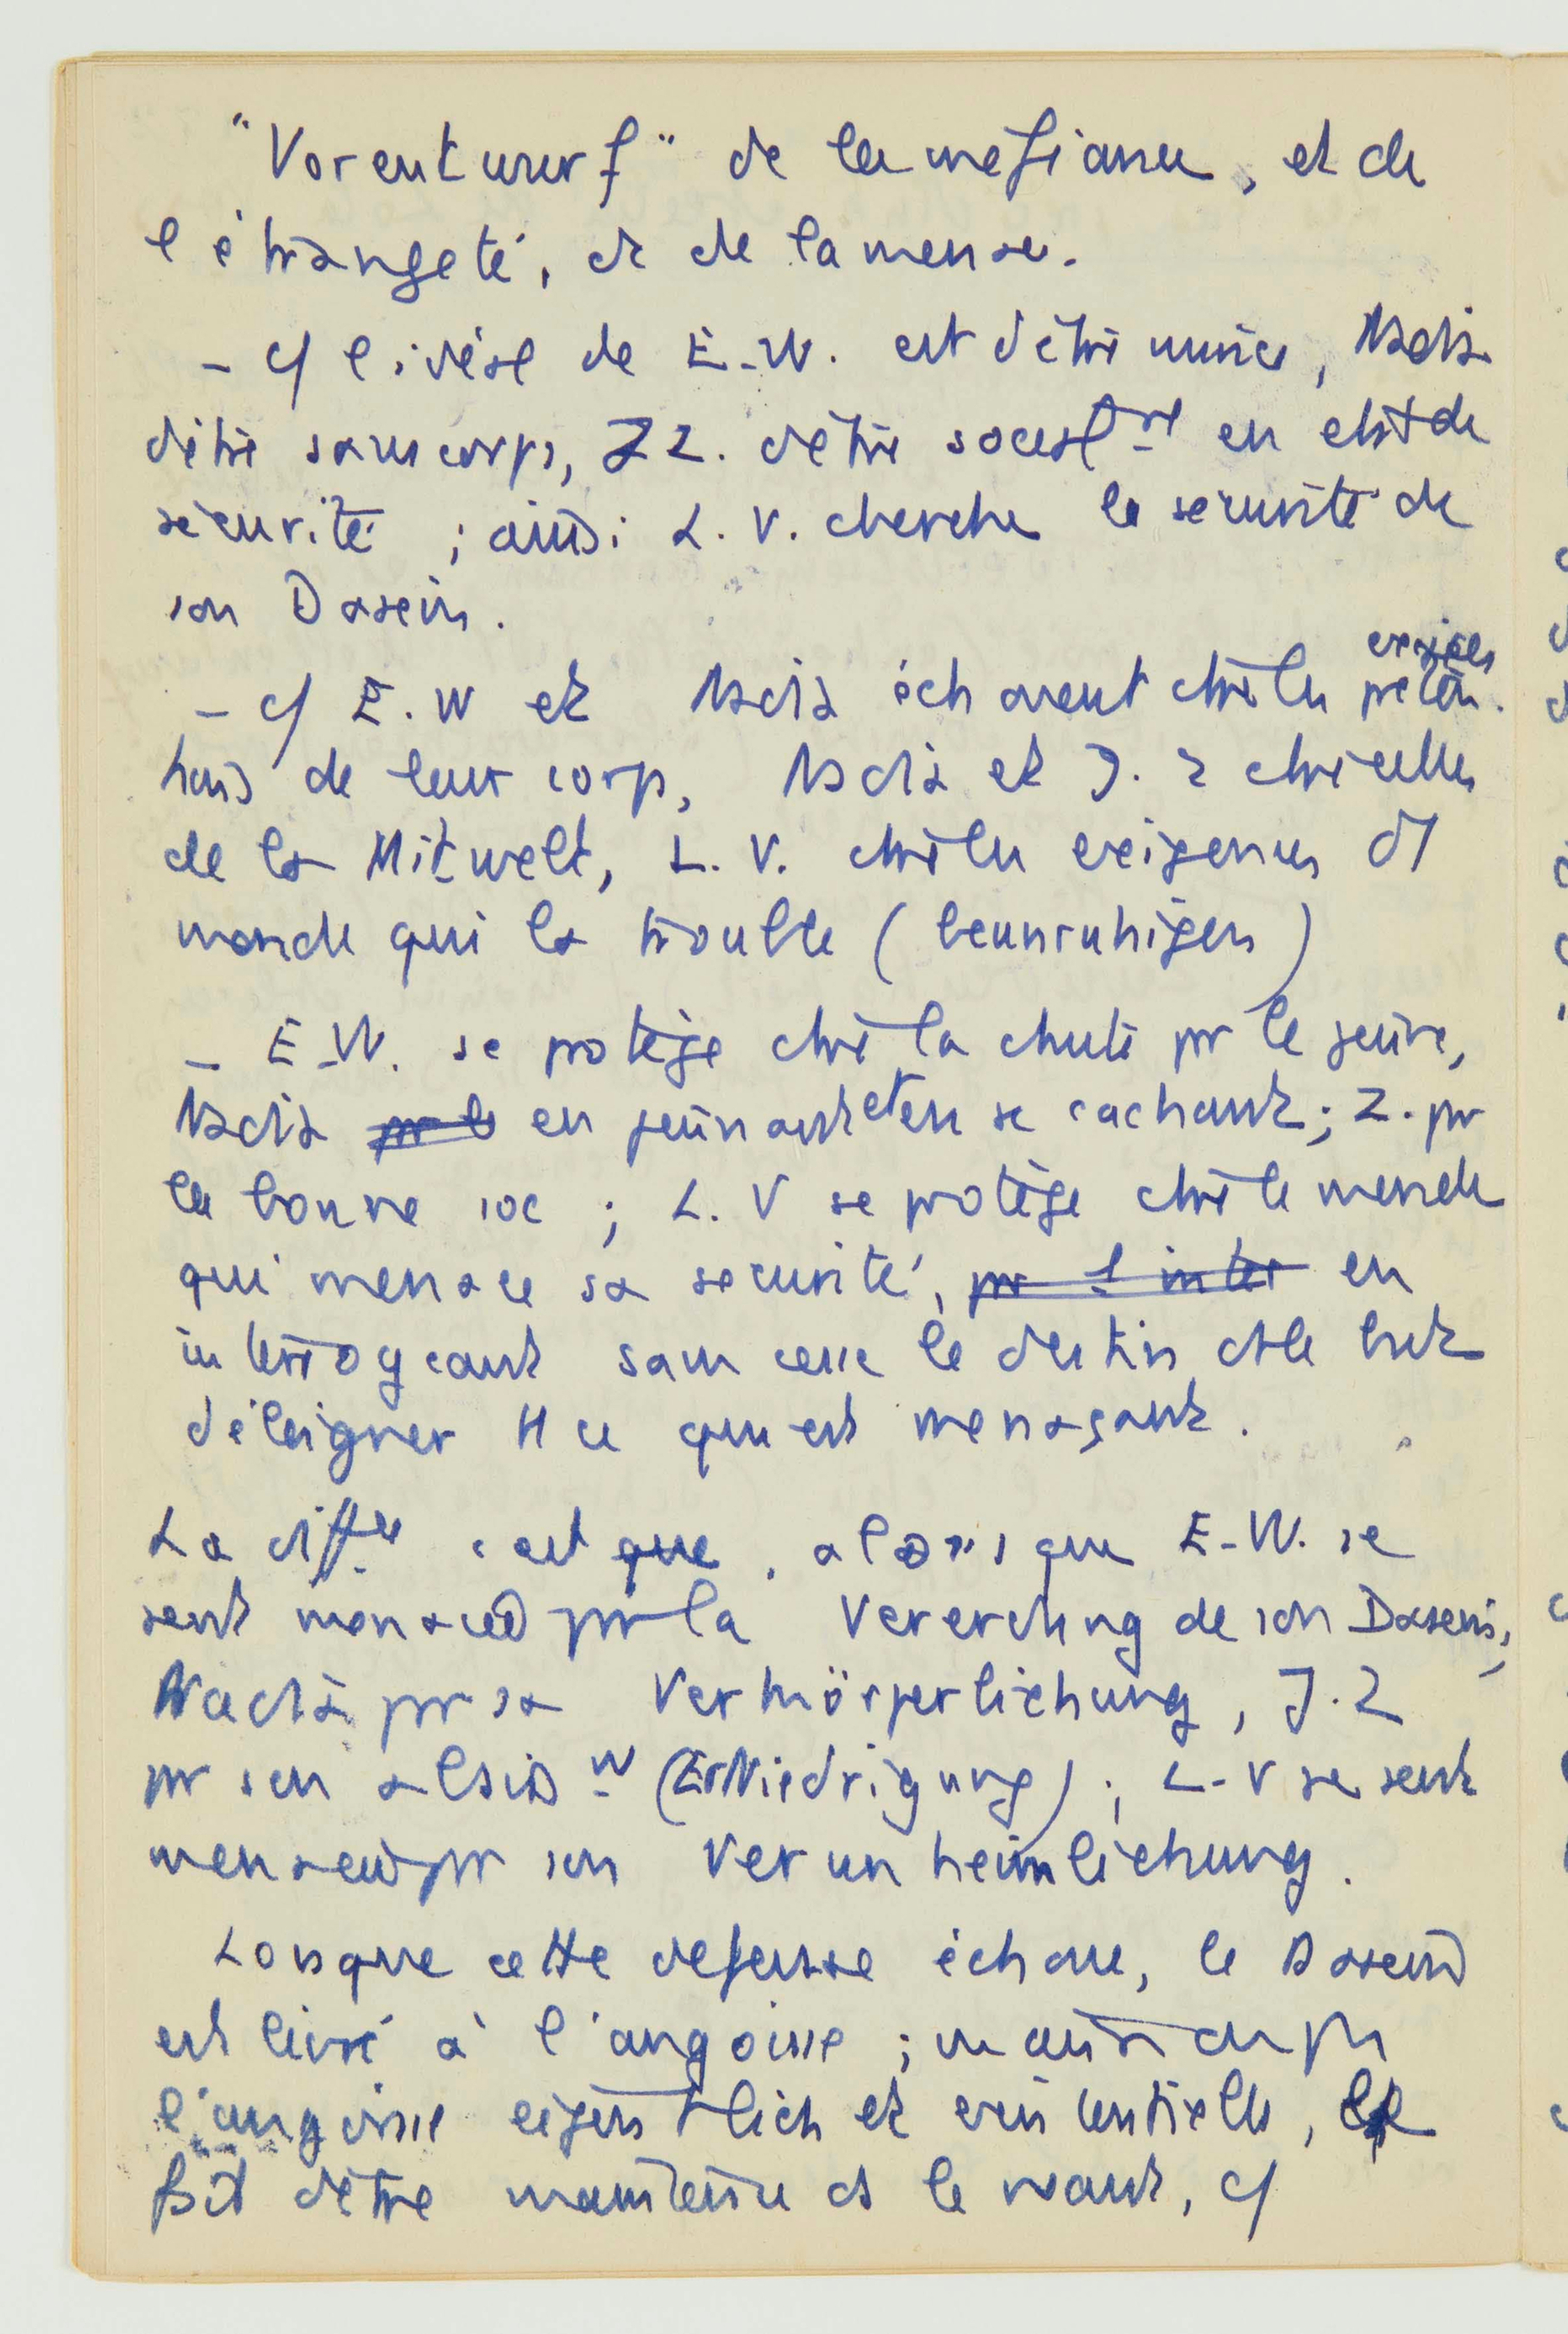 "Vorentwurf" de la mefiance, et de
l'étrangeté, et de la menace.
– c/ l'idéal de E.W. est d'être mince, Nadia
d'être sans corps, J Z. d'être socialt en etat de
sécurité ; ainsi L. V. cherche la sécurité de
son Dasein.
– c/ E.W et Nadia échouent ctre les exigces
de leur corps, Nadia et J. Z ctre celles
de la Mitwelt, L. V. ctre les exigences d'1
monde qui la trouble (beunruhigen)
– E-W. se protège ctre la chute pr le jeûne,
Nadia pr le en jeûnant et en se cachant ; Z. pr
la bonne soc ; L. V se protège ctre le monde
qui menace sa sécurité, pr l'inter en
interrogeant sans cesse le destin ds le but
d'éloigner tt ce qui est menaçant.
La diffce c'est que, alors que E-W. se
sent menacée pr la Vererdung de son Dasein,
Nadia pr sa Verkörperlichung, J. Z
pr son (Erniedrigung) ; L-V se sent
menacée pr son Verunheimlichung.
Lorsque cette defense échoue, le Dasein
est livré à l'angoisse ; non pas
l'angoisse eigentlich et existentielle, le
fait d'être maintenu ds le néant, c/